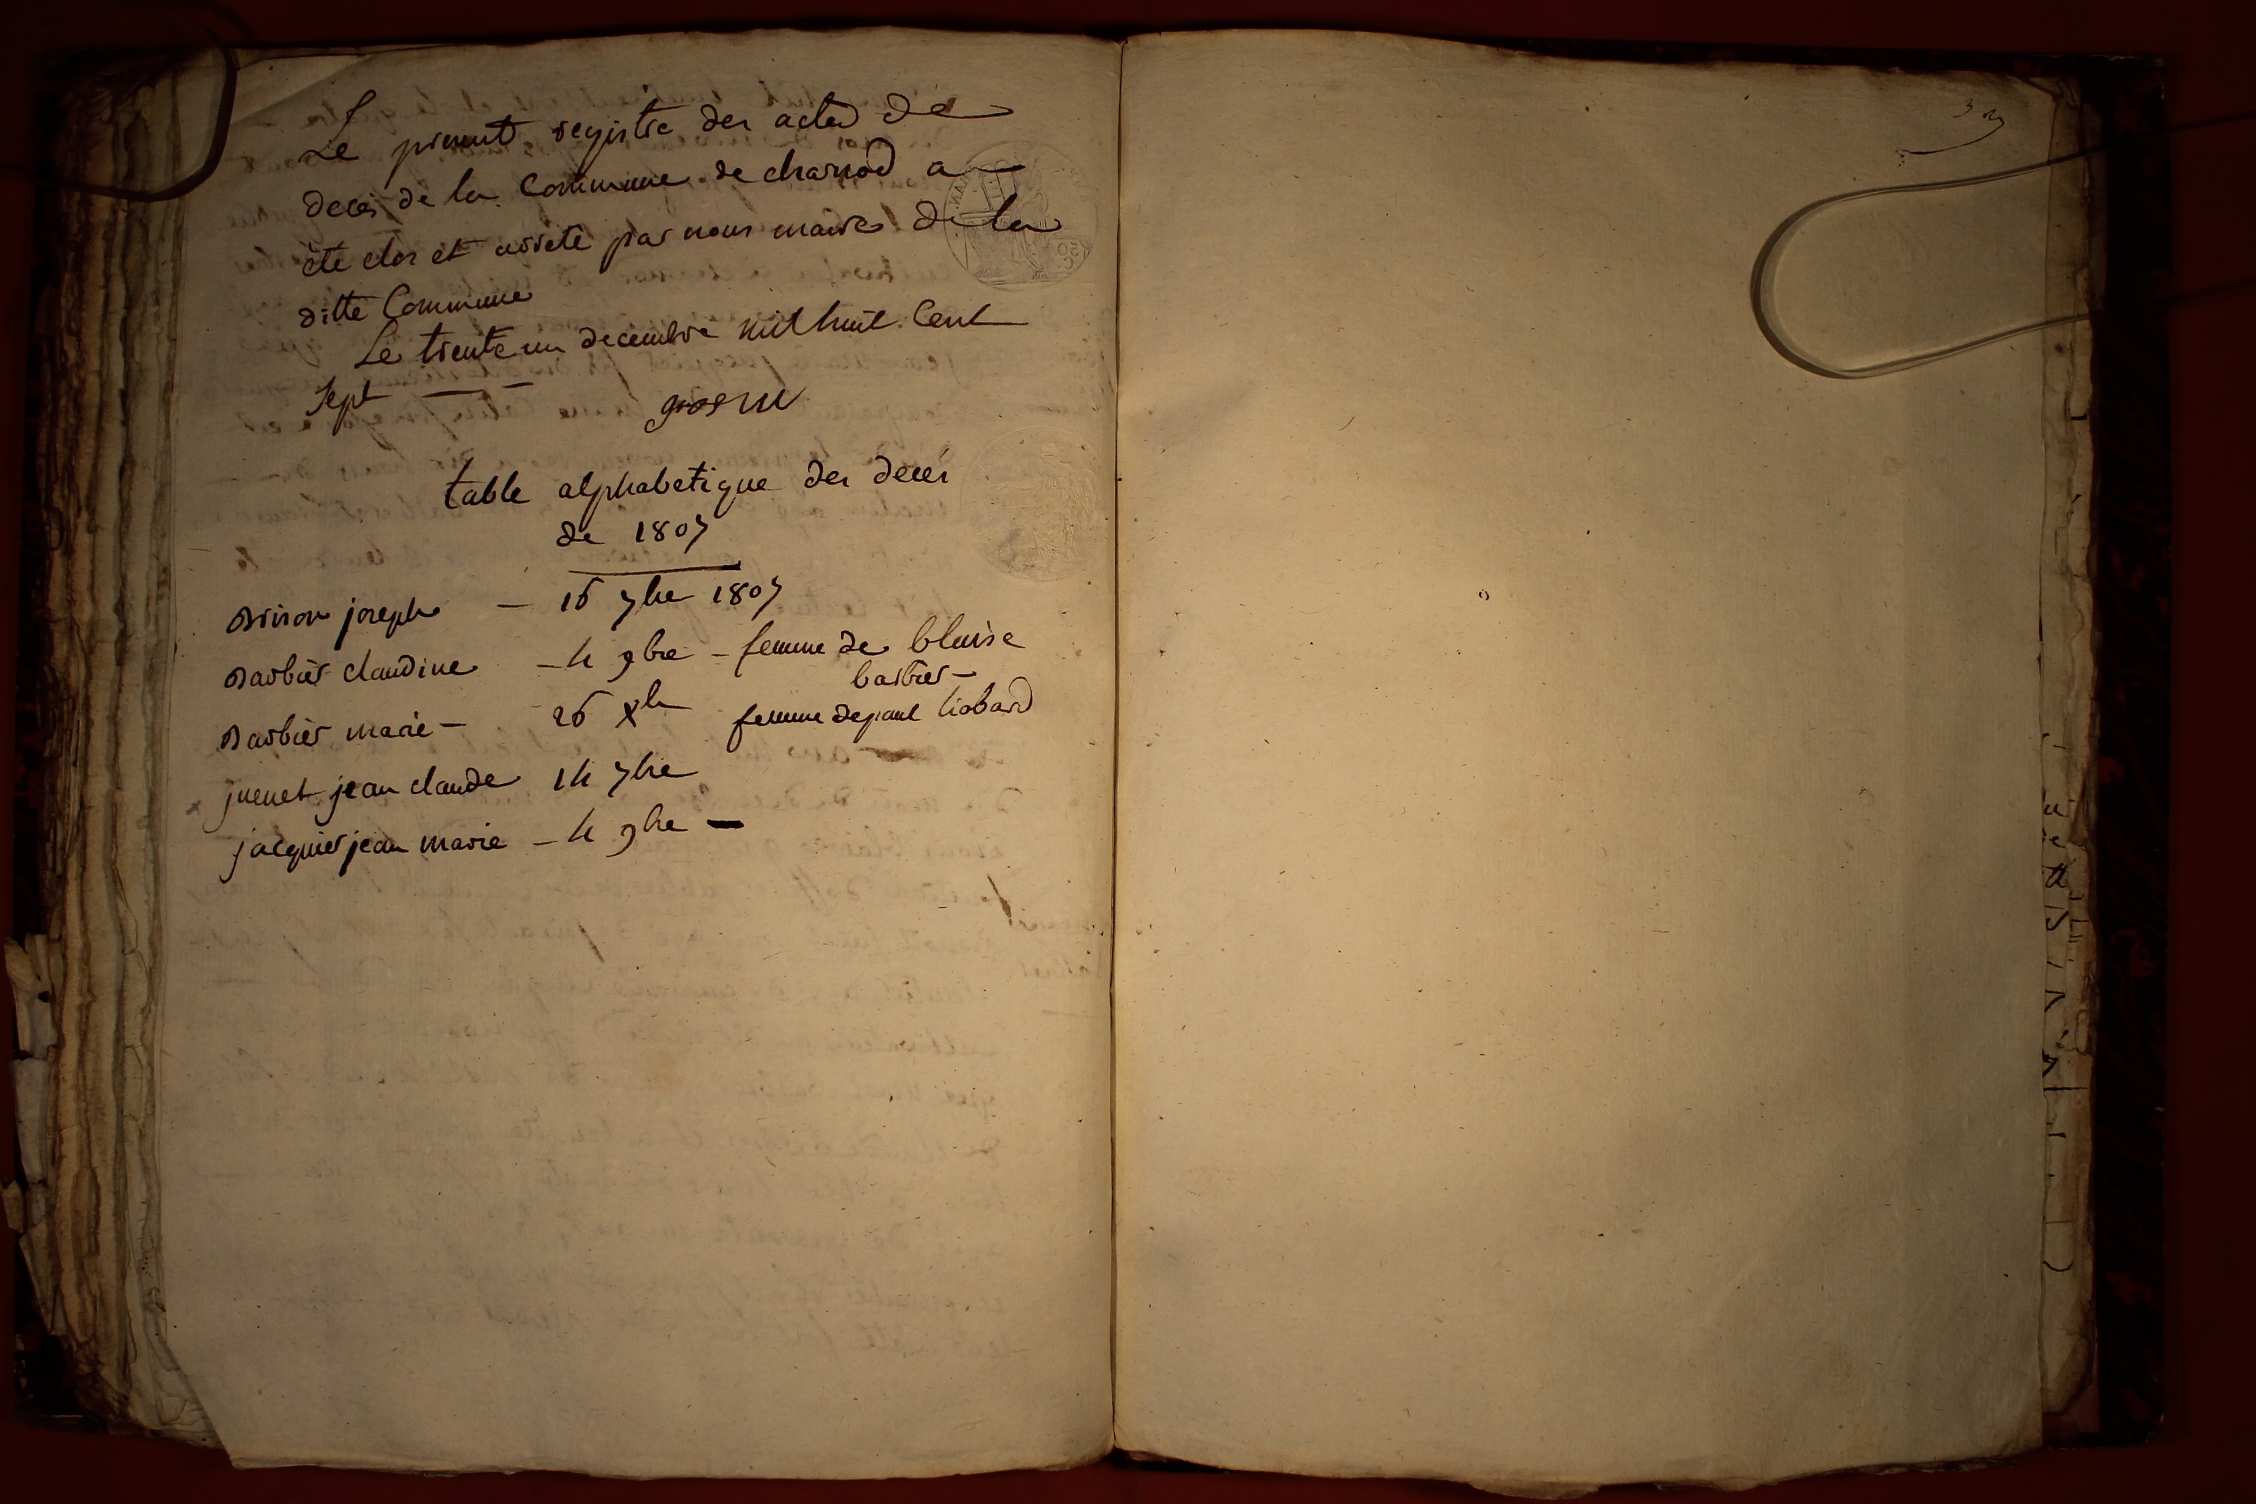 Le present registre des actes de
deces de la Commune de charnod a
ete clos et arrete par nous maire de la
ditte Commune
Le trente un decembre mil huit Cent
Sept
table alphabetique des deces
de 1807
Brison joseph — 16 7bre 1807
Barbier claudine — 4 9bre — femme de blaise
barbier —
Barbier marie — 26 Xbre femme de paul liobard
juenet jean claude 14 7bre
jacquier jean marie — 4 9bre —